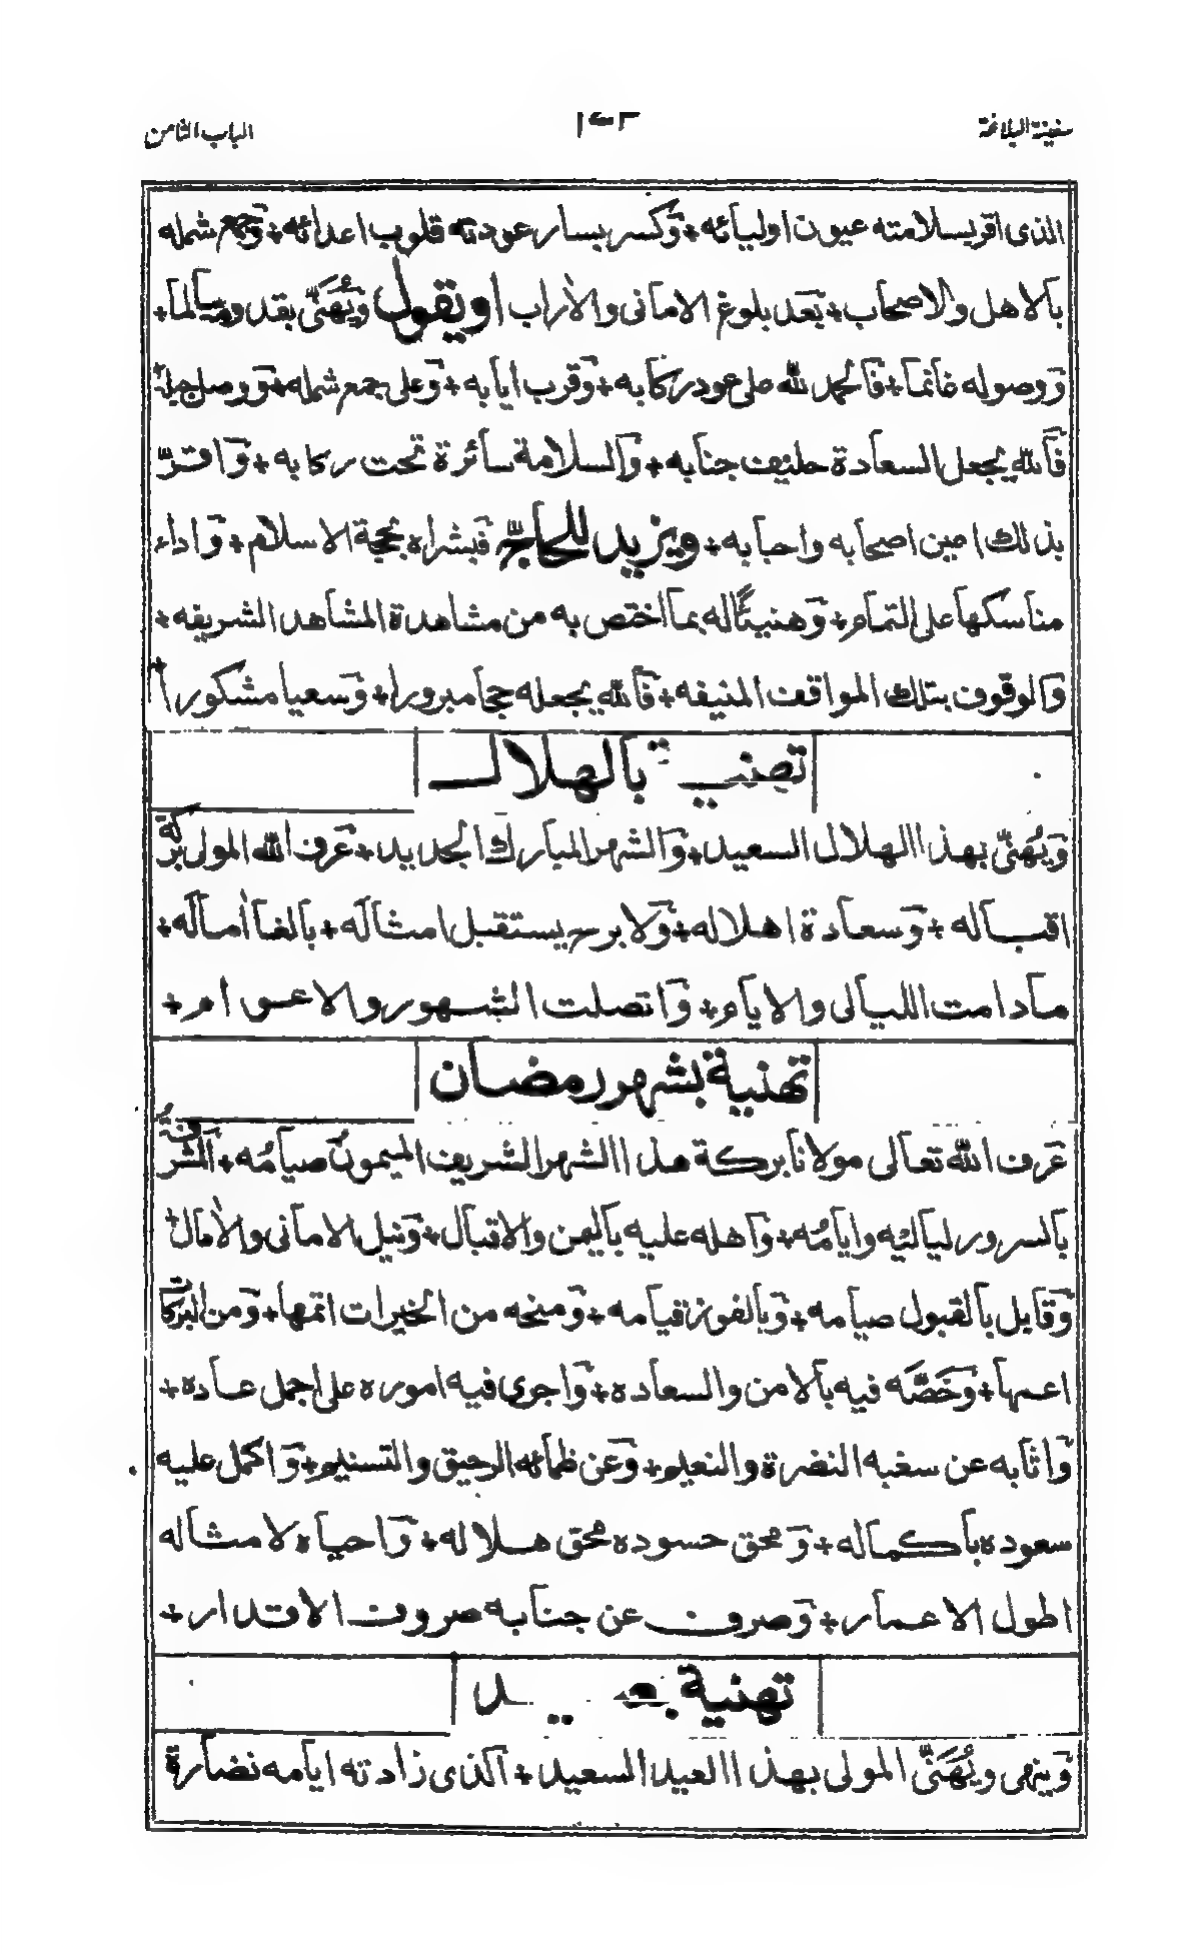 سفينة البلاغة
١٤٣
الباب الثامن
الذى اقر بسلامته عيون اوليائه + وَكسر بسار عودته قلوب اعدائه + وَجمع شمله
بالاهل والاصحاب + بَعد بلوغ الامانى والاٰراب او يقول وَيُهَنّى بقدومه سالما +
وَوصوله غانما + فَالحمد لله على عود ركابه + وَقرب ايابه + وَعلى جمع شمله + وَوصل
فَالله يجعل السعادة حليف جنابه + وَالسلامة سائرة تحت ركابه + وَاقرّ
بذلك اعين اصحابه واحبابه + ويزيد للحاجّ فَبشراه بحجة الاسلام + وَاداء
مناسكها على التمام + وَهنيئًا له بما اختص به من مشاهدة المشاهد الشريفه +
وَالوقوف بتلك المواقف المنيفه + فَالله يجعله حجا مبرورا + وَسعيا مشكورا +
تهنية بالهلال
وَيُهَنّى بهذا الهلال السعيد + وَالشهر المبارك الجديد + عَرف الله المولى بركة
اقباله + وَسعادة اهلاله + وَلا برح يستقبل امثاله + بالغا اٰماله +
مادامت الليالى والايام + وَاتصلت الشهور والاعوام +
تهنية بشهر رمضان
عَرف الله تعالى مولانا بركة هذا الشهر الشريف الميمون صيامُه + اَلمشرفة
بالسرور لياليه وايامُه + وَاهله عليه باليمن والاقبال + وَنيل الامانى والاٰمال +
وَقابل بالقبول صيامه + وَبالفوز قيامه + وَمنحه من الخيرات اتمها + وَمن البركات
اعمها + وَخَصَّه فيه بالامن والسعاده + وَاجرى فيه اموره على اجمل عاده +
وَاثابه عن سغبه النضرة والنعيم + وَعن ظمائه الرحيق والتسنيم + وَاكمل عليه
سعوده باكماله + وَمحق حسوده محق هلاله + وَاحياه لامثاله
اطول الاعمار + وَصرف عن جنابه صروف الاقدار +
تهنية بعيد
وَينهى ويُهَنّى المولى بهذا العيد السعيد + اَلذى زادته ايامه نضارة